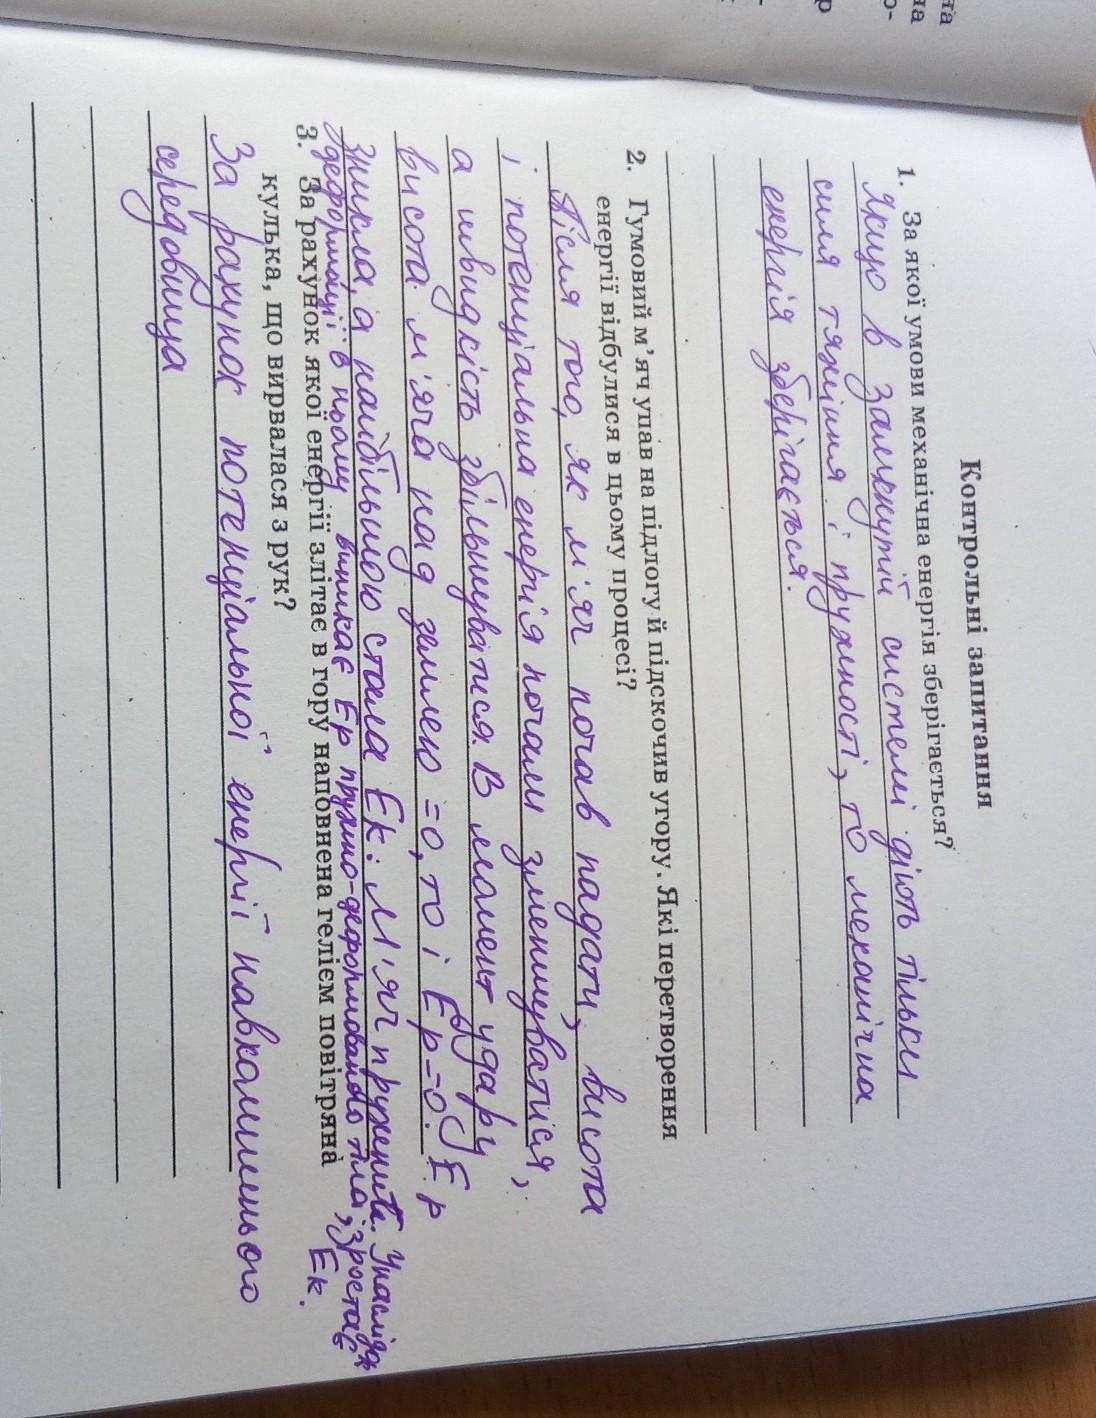 Контрольні запитання
1. За якої умови механічна енергія зберігається?
Якщо в замкнутій системі діють тільки
сили тяжіння і пружності, то механічна
енергія зберігається.
2. Гумовий м’яч упав на підлогу й підскочив угору. Які перетворення
енергії відбулися в цьому процесі?
Після того, як м'яч почав падати, висота
і потенціальна енергія почали зменшуватися,
а швидкість збільшуватися. В момент удару
висота м'яча над землею =0, то і Ер=0. Ер
зникла, а найбільшою стала Ек. М'яч пружний. Унаслідок
деформації в ньому виникає Ер пружно-деформованого тіла, зростає
Ек.
3. За рахунок якої енергії злітає в гору наповнена гелієм повітряна
кулька, що вирвалася з рук?
За рахунок потенціальної енергії навколишнього
середовища